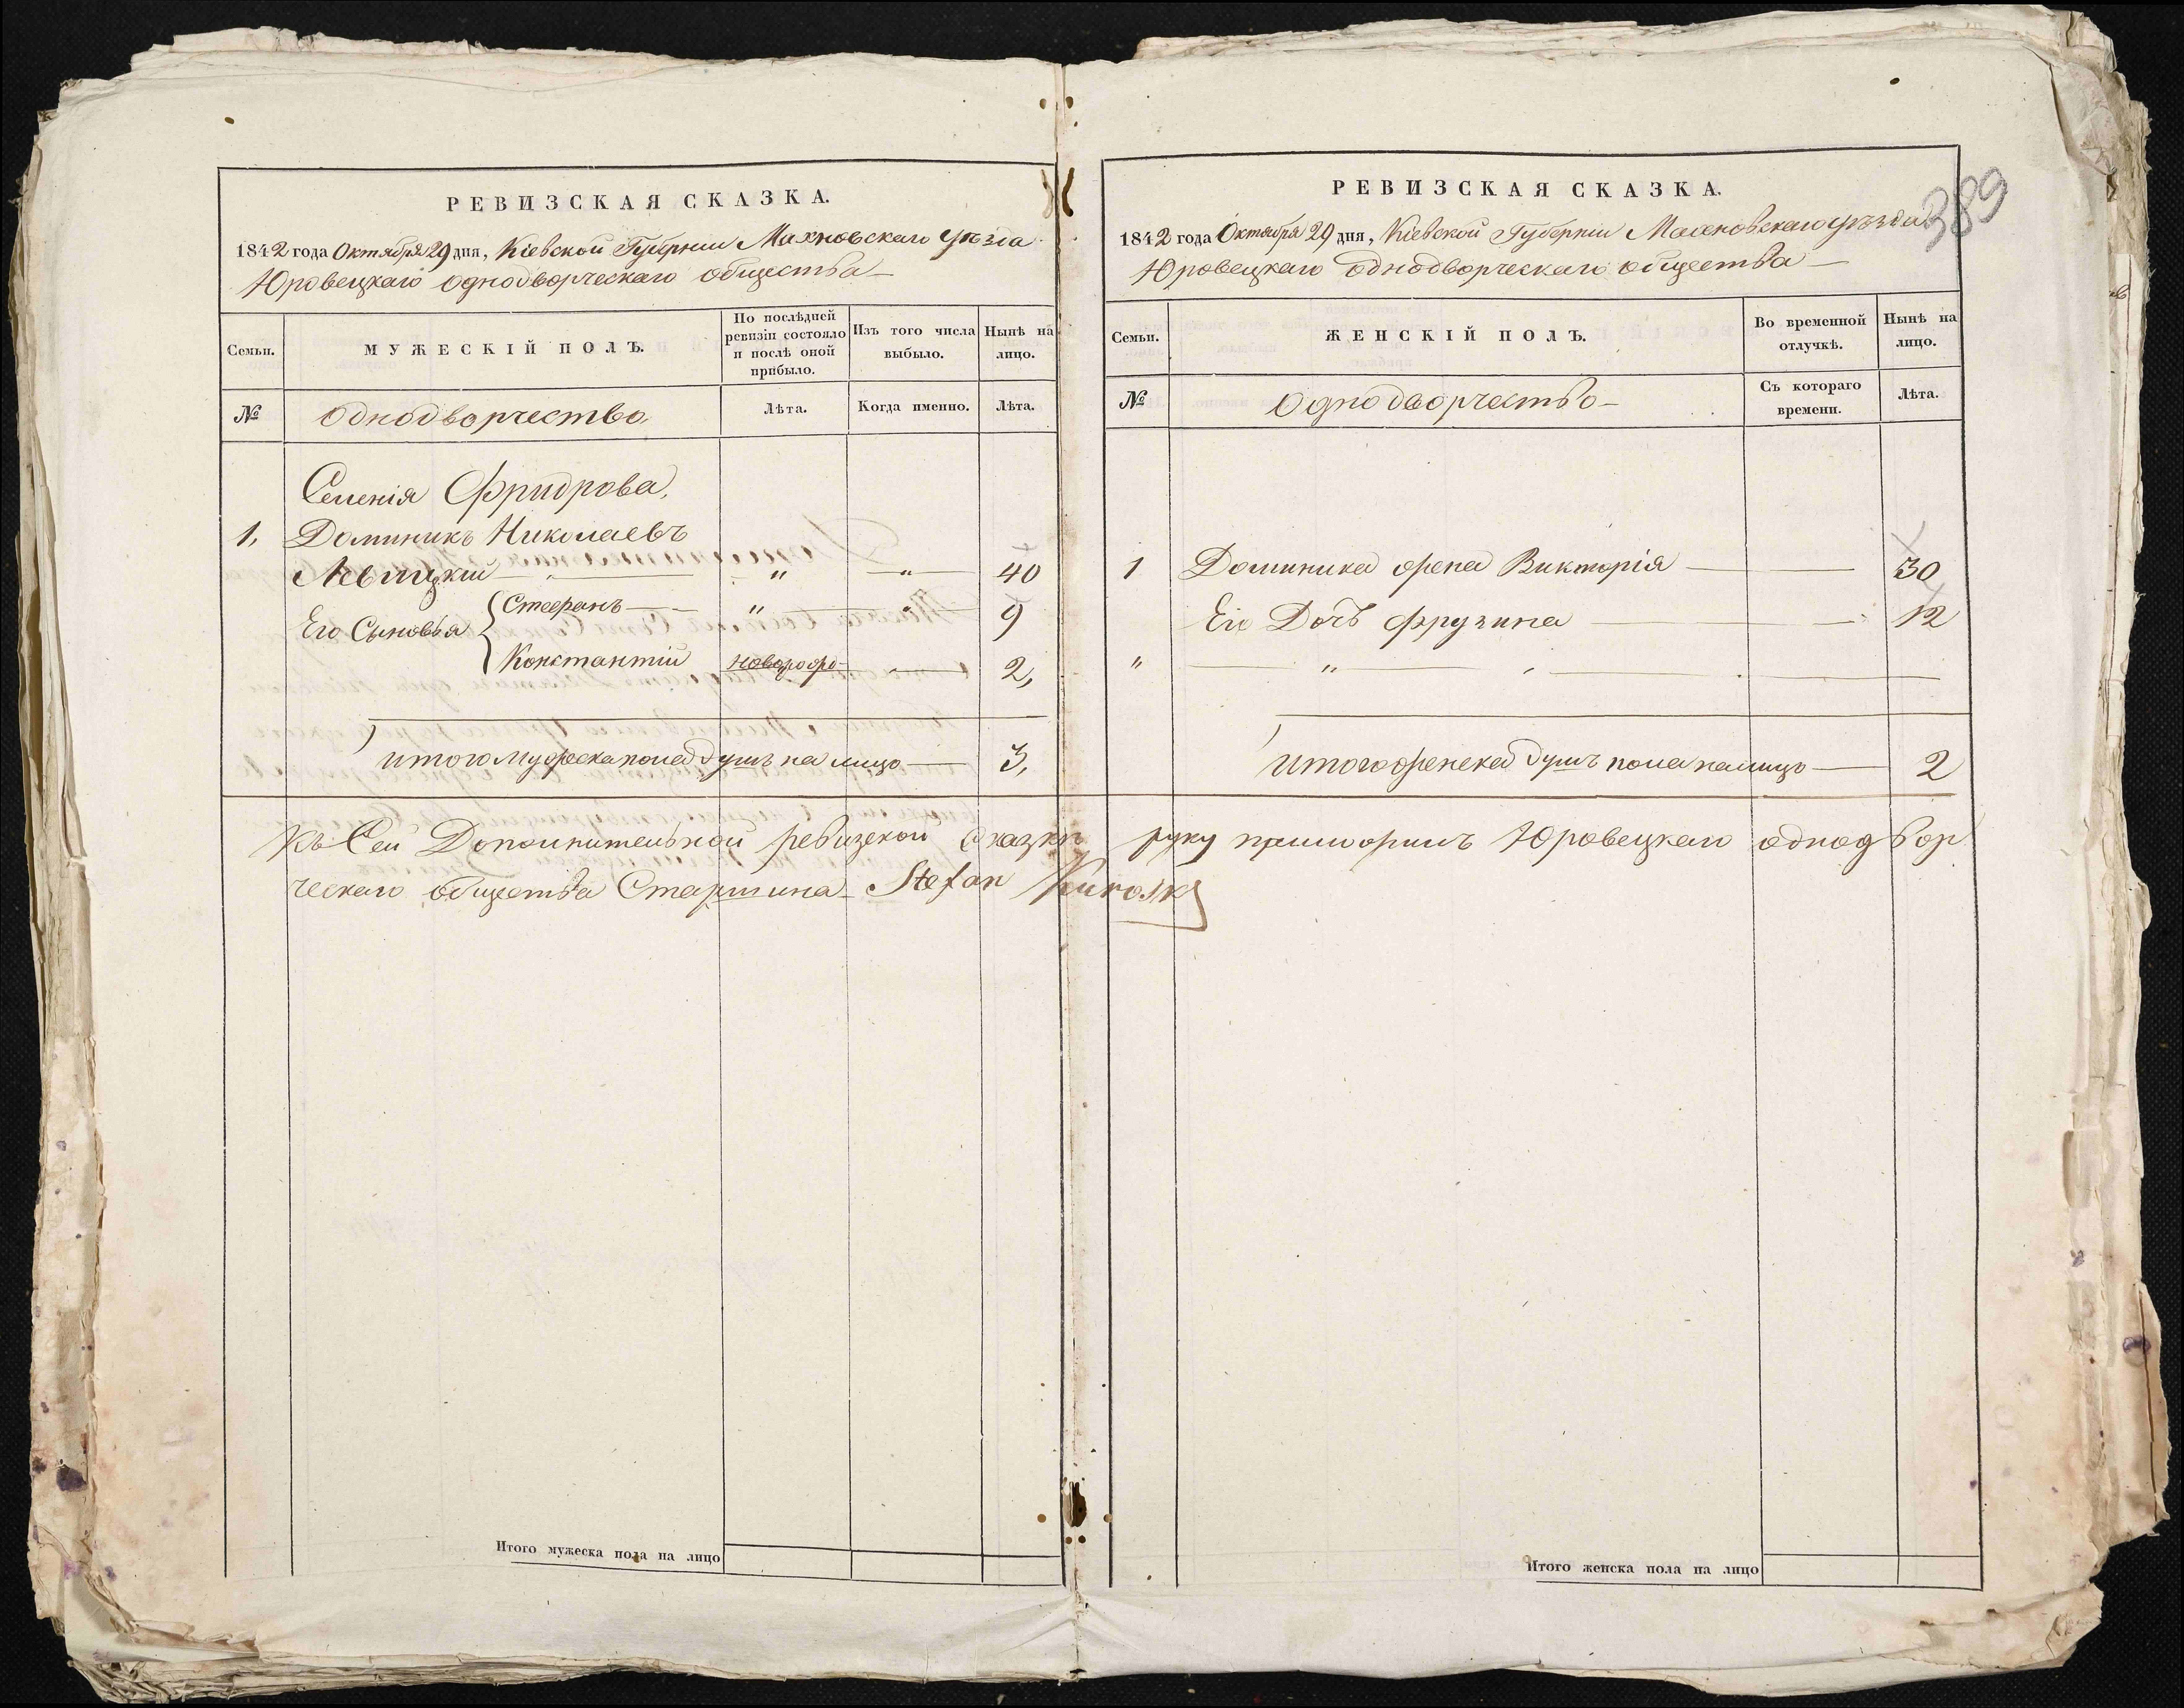 РЕВИЗСКАЯ СКАЗКА.
1842 года Октября 29 дня, Кіевской Губерніи Махновскаго Уѣзда
Юровецкаго однодворческаго общества
Семьи.
МУЖЕСКІЙ ПОЛЪ.
По послѣдней ревизіи состояло и послѣ оной прибыло.
Изъ того числа выбыло.
Нынѣ на лицо.
№
Однодворчество.
Лѣта.
Когда именно.
Лѣта.
Селенія
1, Доминикъ Николаевъ
Левицкій — " — " — 40
Его Сыновья { Стефанъ — " — " — 9
Константій новорож- " — 2,
итого мужеска пола душъ на лицо — 3,
Итого мужеска пола на лицо
389
РЕВИЗСКАЯ СКАЗКА.
1842 года Октября 29 дня, Кіевской Губерніи Махновскаго уѣзда
Юровецкаго однодворческаго общества —
Семьи.
ЖЕНСКІЙ ПОЛЪ.
Во временной отлучкѣ.
Нынѣ на лицо.
№
Однодворчество —
Съ котораго времени.
Лѣта.
1 Доминика жена Викторія — 30
Его Дочь Фрузина — 12
" — " —
Итого женска душъ пола налицо — 2
Къ Сей Дополнительной ревизской сказкѣ руку приложилъ Юровецкаго однодвор
ческаго общества Старшина — Stefan
Итого женска пола на лицо